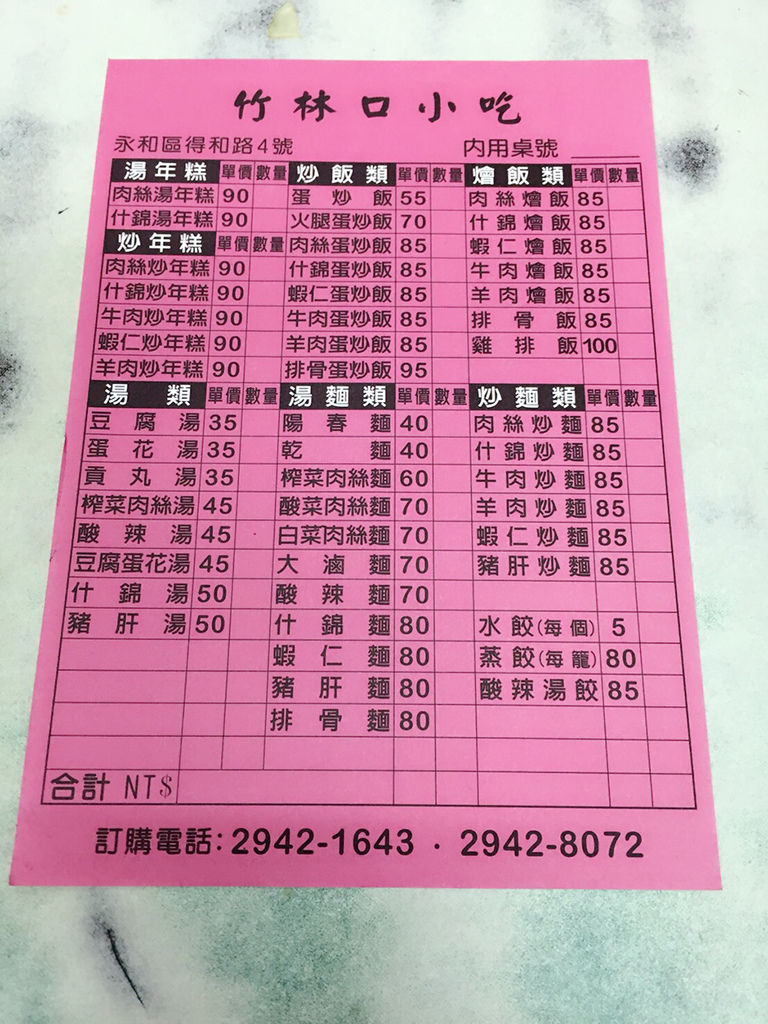 竹林口小吃
永和區得和路4號 内用桌號
湯年糕 單價 數量 炒飯類 單價 數量 燴飯類 單價 數量
肉絲湯年糕 90 蛋炒飯 55 肉絲燴飯 85
什錦湯年糕 90 火腿蛋炒飯 70 什錦燴飯 85
炒年糕 單價 數量 肉絲蛋炒飯 85 蝦仁燴飯 85
肉絲炒年糕 90 什錦蛋炒飯 85 牛肉燴飯 85
什錦炒年糕 90 蝦仁蛋炒飯 85 羊肉燴飯 85
牛肉炒年糕 90 牛肉蛋炒飯 85 排骨飯 85
蝦仁炒年糕 90 羊肉蛋炒飯 85 雞排飯 100
羊肉炒年糕 90 排骨蛋炒飯 95
湯類 單價 數量 湯麵類 單價 數量 炒麵類 單價 數量
豆腐湯 35 陽春麵 40 肉絲炒麵 85
蛋花湯 35 乾麵 40 什錦炒麵 85
貢丸湯 35 榨菜肉絲麵 60 牛肉炒麵 85
榨菜肉絲湯 45 酸菜肉絲麵 70 羊肉炒麵 85
酸辣湯 45 白菜肉絲麵 70 蝦仁炒麵 85
豆腐蛋花湯 45 大滷麵 70 豬肝炒麵 85
什錦湯 50 酸辣麵 70
豬肝湯 50 什錦麵 80 水餃(每個) 5
蝦仁麵 80 蒸餃(每籠) 80
豬肝麵 80 酸辣湯餃 85
排骨麵 80
合計 NT$
訂購電話:2942-1643 · 2942-8072